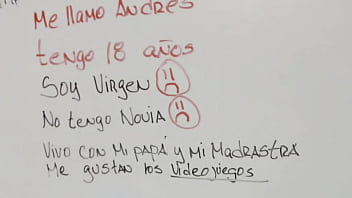 Me llamo Andrés
tengo 18 años
Soy Virgen
No tengo Novia
Vivo con Mi papá y Mi Madrastra
Me gustan los Videojuegos